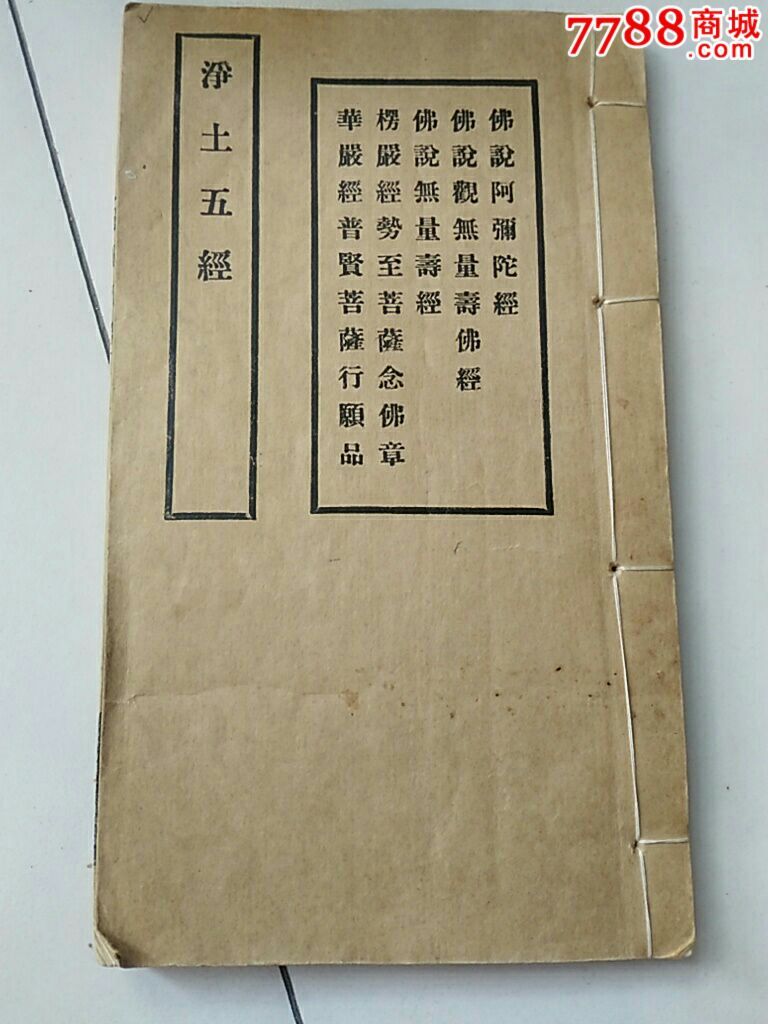 7788商城
.com
佛說阿彌陀經
佛說觀無量壽佛經
佛說無量壽經
楞嚴經勢至菩薩念佛章
華嚴經普賢菩薩行願品
淨土五經